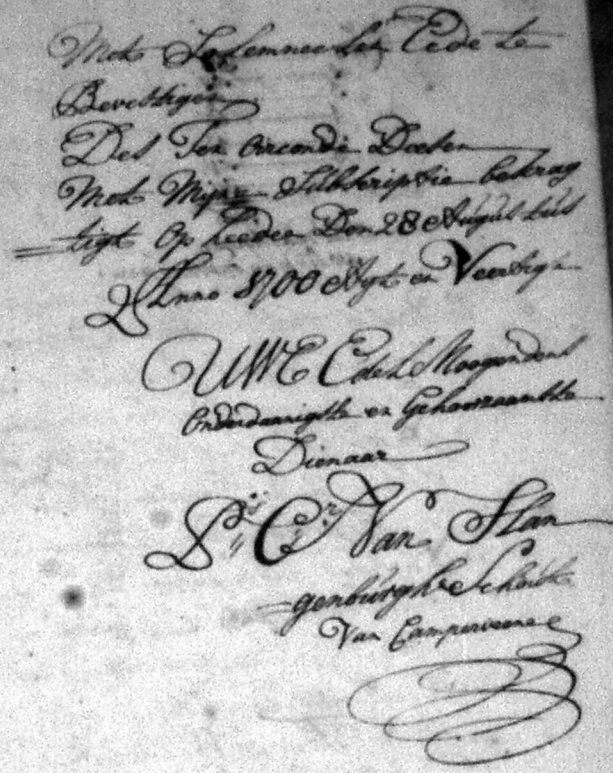 Met Solemneelen Eede te
Bevestigen
Des Ten oirconde Deesen
Met Mijne Subscriptie bekrag
=tigt Op heeden Den 28 Augustus
Anno 1700 Agt en Veertigh
UWE Edele Moogendens
Onderdaanigste en Gehoorsaamste
Dienaar
Van Slan
=genburgh Schout
Van Camperveene